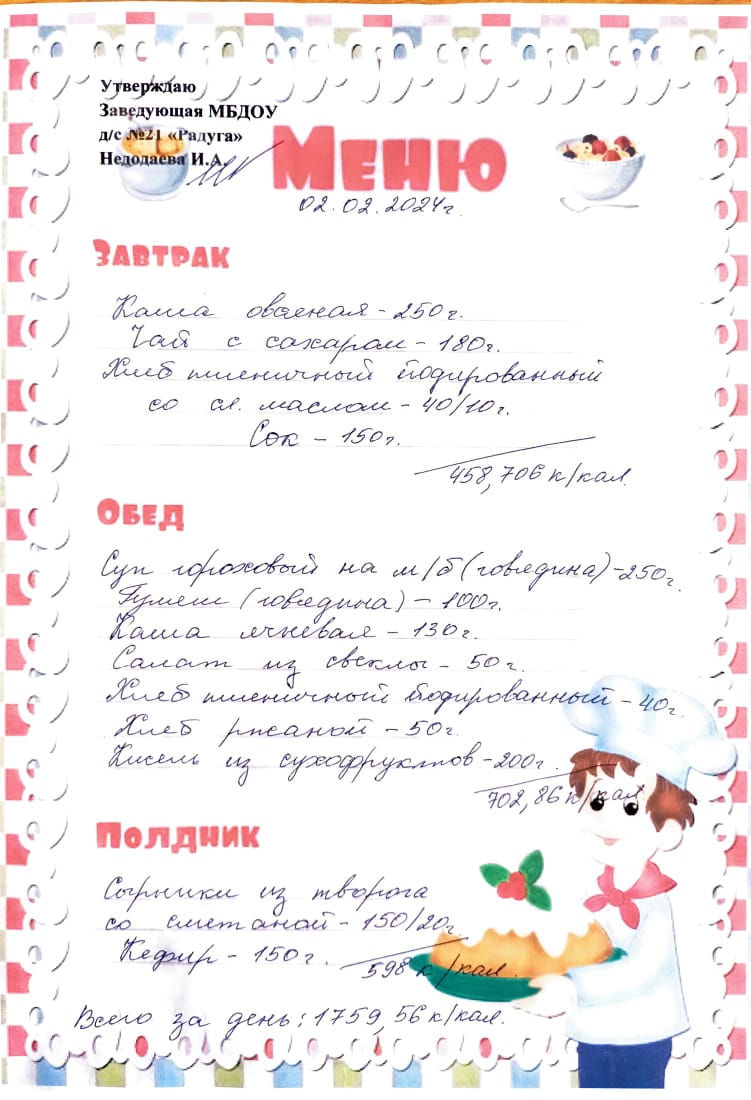 Утверждаю
Заведующая МБДОУ
д/с №21 «Радуга»
Недодаева И.А.
Меню
02.02.2024г.
Завтрак
Каша овсяная - 250г.
Чай с сахаром - 180г.
Хлеб пшеничный йодированный
со сл. маслом - 40/10г.
Сок - 150г.
458,706 к/кал.
Обед
Суп гороховый на м/б (говядина) - 250г.
Гуляш (говядина) - 100г.
Каша ячневая - 130г.
Салат из свеклы - 50г.
Хлеб пшеничный йодированный - 40г.
Хлеб ржаной - 50г.
Кисель из сухофруктов - 200г.
702,86 к/кал
Полдник
Сырники из творога
со сметаной - 150/20г.
Кефир - 150г.
598 к/кал.
Всего за день: 1759,56 к/кал.